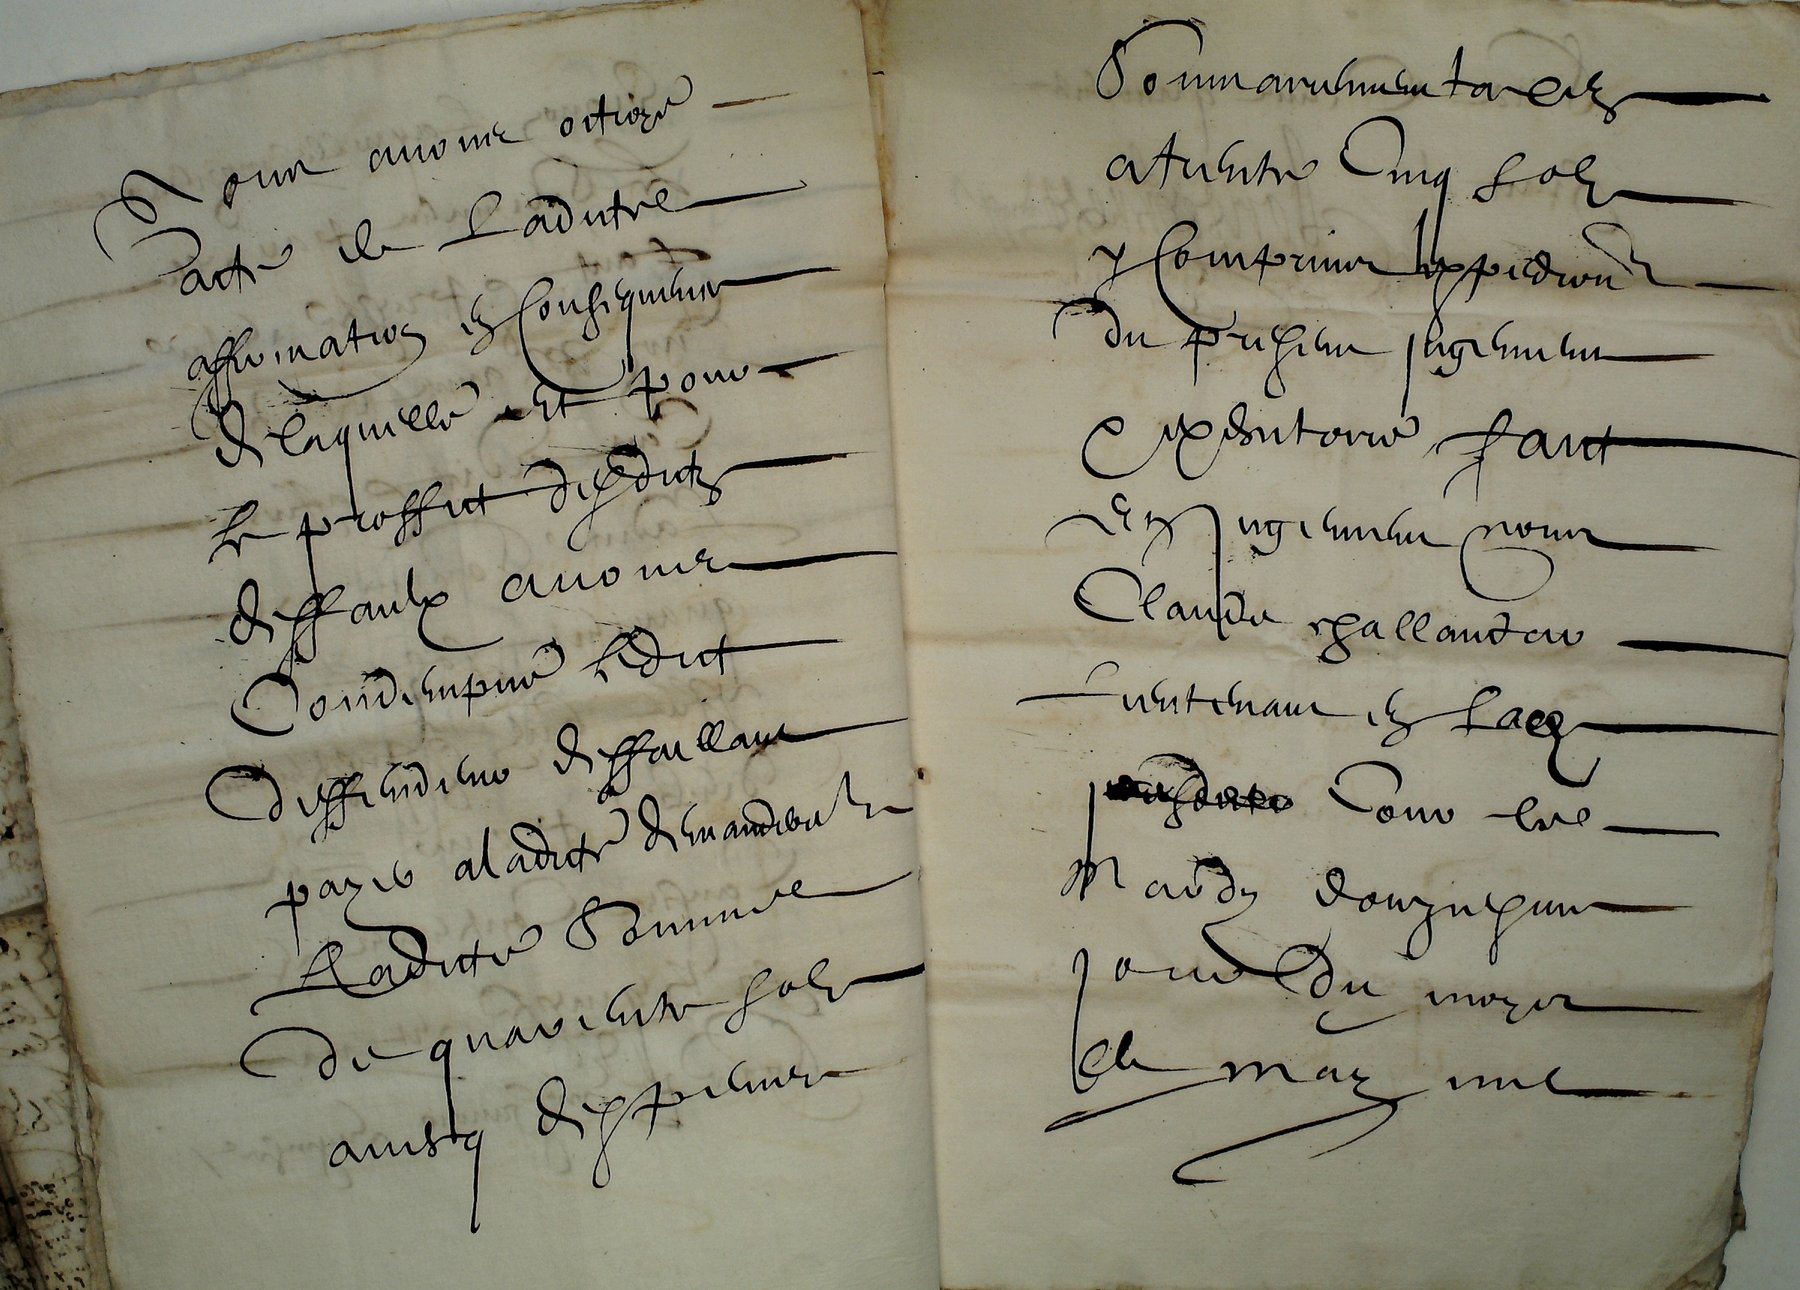 Nous avons octroyé
acte de Ladicte
affirmation en Consequence
de laquelle Et pour
le proffict desdictz
deffaulx avons
Condempné ledict
deffendeur deffaillant
payer a ladicte demanderesse
Ladicte Somme
de quarente solz
avecq despens
Sommairement taxez
a trente Cinq solz
y Comprins lexpedition
du present jugement
executoire sant
Par jugement nous
Claude
Lieutenant en la
Cour
Mardy douzyesme
jour du moys
de may mil